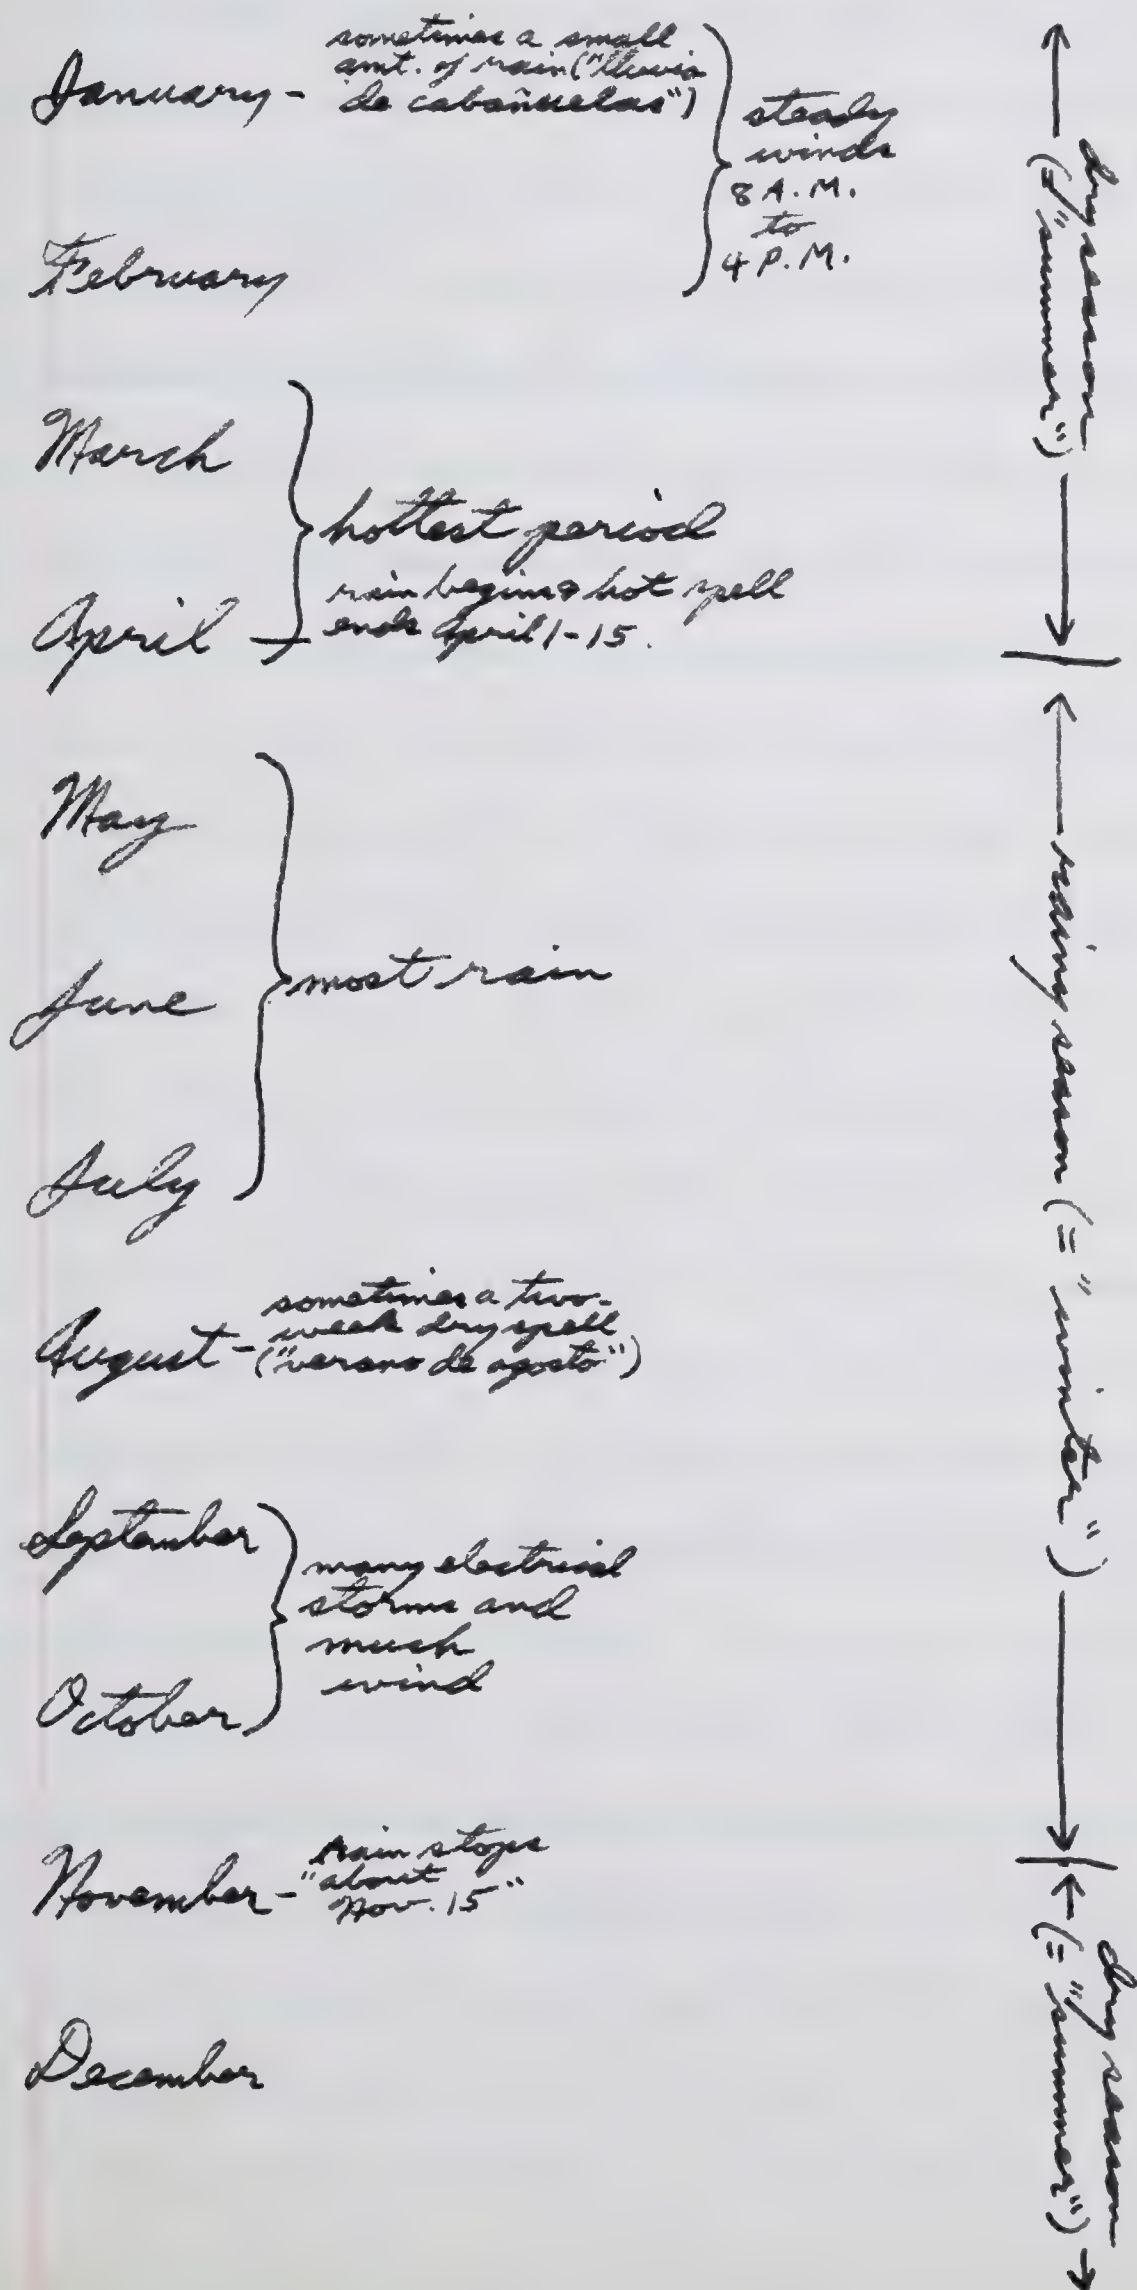 January - sometimes a small
amt. of rain ("lluvia
de cabañuelas")
steady
winds
8 A.M.
to
4 P.M.
February
March
hottest period
April - rain begins & hot spell
ends April 1-15.
May
June
most rain
July
August - sometimes a two-
week dry spell
("verano de agosto")
September
many electrical
storms and
much
wind
October
November - rain stops
"about
Nov. 15"
December
dry season
(= "summer")
rainy season (= "winter")
dry season
(= "summer")